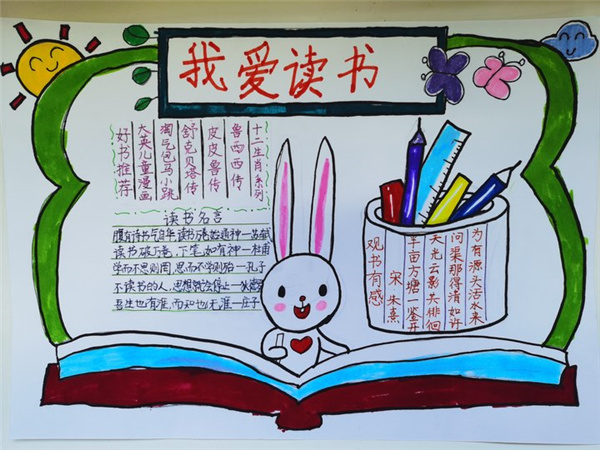 我爱读书
好书推荐
大英儿童漫画
淘气包马小跳
舒克贝塔传
皮皮鲁传
鲁西西传
十二生肖系列
读书名言
腹有诗书气自华 读书万卷始通神—苏轼
读书破万卷,下笔如有神—杜甫
学而不思则罔,思而不学则殆—孔子
不读书的人,思想就会停止—狄德罗
吾生也有涯,而知也无涯—庄子
观书有感
宋 朱熹
半亩方塘一鉴开
天光云影共徘徊
问渠那得清如许
为有源头活水来